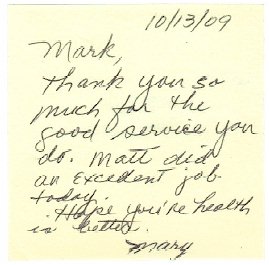 10/13/09
Mark,
Thank you so
much for the
good service you
do. Matt did
an excedent job
today.
Hope you're health
is better.
Mary